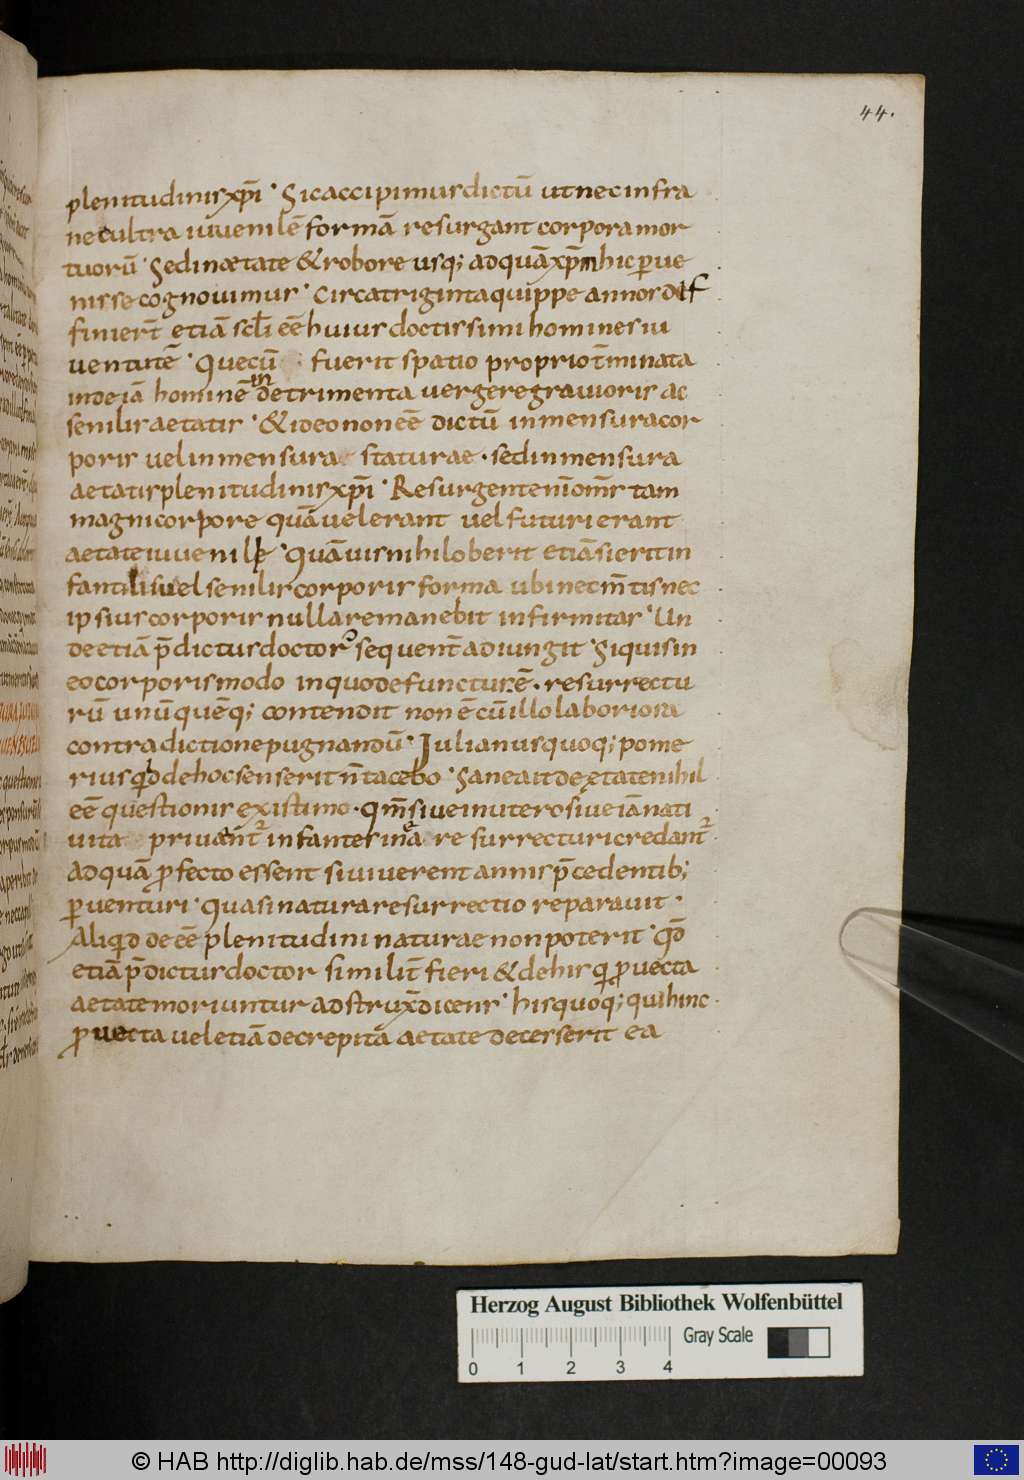 44.
plenitudinis xp̄i · Sic accipimus dictū ut nec infra
nec ultra iuuenilē formā resurgant corpora mor
tuorū · Sed in aetate & robore usq; ad quā xp̄m hic ꝑue
nisse cognouimus · Circa triginta quippe annos def
finier̄t etiā scl̄i eē huius doctissimi homines iu
uentutē · Quecū fuerit spatio proprio t̄minata
inde iā hominē in detrimenta uergere grauioris ac
senilis aetatis · & ideo non eē dictū in mensura cor
poris uel in mensura staturae · sed in mensura
aetatis plenitudinis xp̄i · Resurgent eni om̄s tam
magni corpore quā uel erant uel futuri erant
aetate iuuenile · Quāuis nihil oberit etiā si erit in
fantilis uel senilis corporis forma ubi nec m̄tis nec
ipsius corporis nulla remanebit infirmitas · Un
de etiā p̄dictus doctor sequent̄ adiungit · Si quis in
eo corporis modo in quo defunctus ē · resurrectu
rū unūquēq; contendit non ē cū illo laboriosa
contradictione pugnandū · Julianus quoq; pome
rius quid de hoc senserit n̄ tacebo · Sane ait de ętate nihil
eē questionis existimo · qm̄ siue in utero siue iā nati
uita priuant᷑ infantes in ea resurrecturi credant᷑
Ad quā ꝓfecto essent si uiuerent annis p̄cedentib;
ꝑuenturi · quasi natura resurrectio reparauit ·
Aliquid deeē plenitudini naturae non poterit · qd̄
etiā p̄dictus doctor similit̄ fieri & de his qui ꝓuecta
aetate moriuntur adstrux̄ dicens · his quoq; qui hinc
ꝓuecta uel etiā decrepitā aetate decesserit ea
Herzog August Bibliothek Wolfenbüttel
Gray Scale
0 1 2 3 4
© HAB http://diglib.hab.de/mss/148-gud-lat/start.htm?image=00093